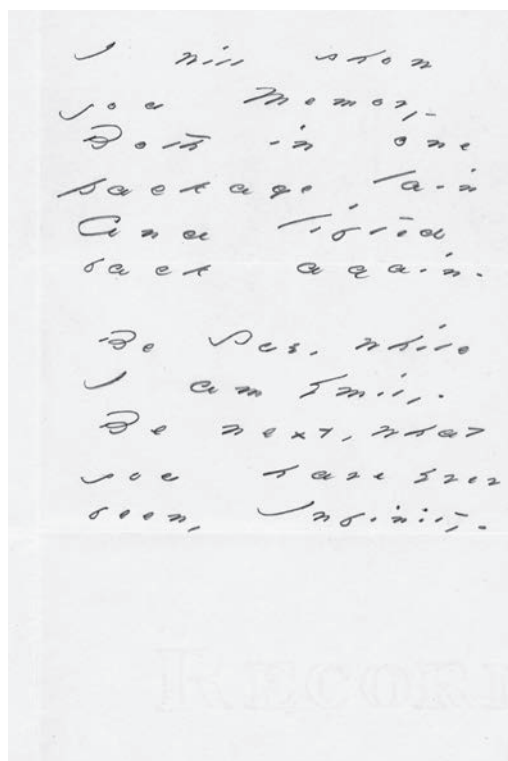 I will show
you Memory –
Both in one
package lain
And lifted
back again.
Be Sue, while
I am Emily.
Be next, what
you have ever
been, Infinity.